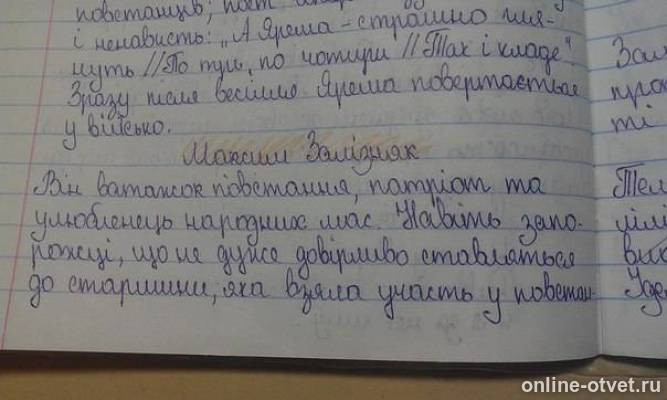 повстанців; поет
і ненависть: „А Ярема – страшно гля-
нуть // По три, по чотири // Так і кладе".
Зразу після весілля Ярема повертається
у військо.
Максим Залізняк
Він ватажок повстання, патріот та
улюбленець народних мас. Навіть запо-
рожці, що не дуже довірливо ставляться
до старшини, яка взяла участь у повстан-
Зал
про
ті
Тел
online-otvet.ru